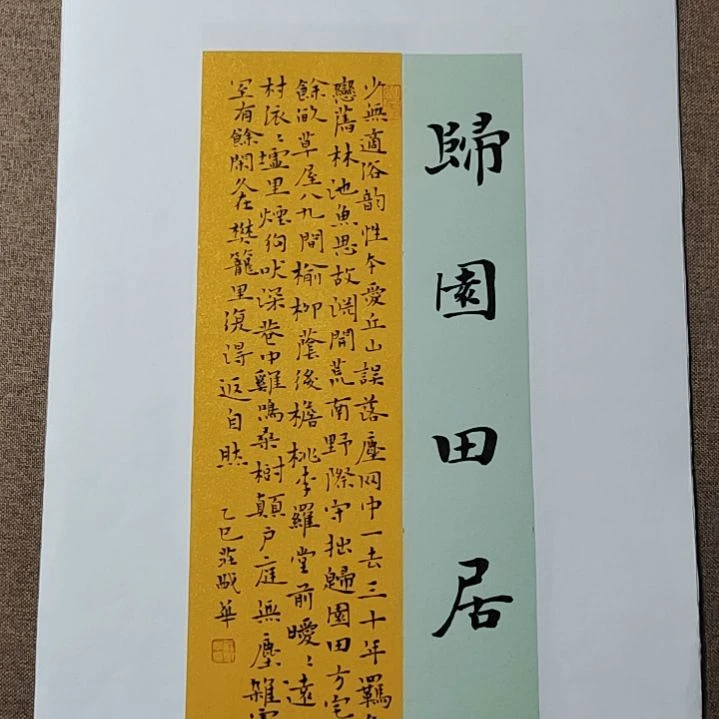 歸園田居
少無適俗韵性本愛丘山誤落塵网中一去三十年羈
戀舊林池魚思故渊開荒南野際守拙歸園田方宅
餘畝草屋八九間榆柳蔭後檐桃李羅堂前曖〻遠
村依〻墟里煙狗吠深巷中雞鳴桑樹顛戶庭無塵雜
室有餘閑久在樊籠里復得返自然
乙巳莊華